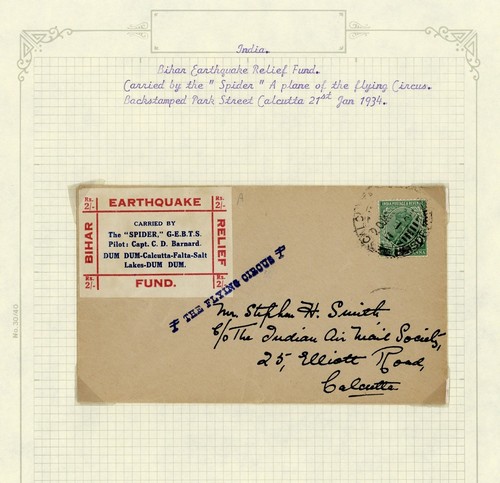 India.
Bihar Earthquake Relief Fund.
Carried by the "Spider" A plane of the flying Circus.
Backstamped Park Street Calcutta 21st Jan 1934.
Rs. 2/-
EARTHQUAKE
Rs. 2/-
BIHAR
CARRIED BY
The "SPIDER," G-E.B.T.S.
Pilot: Capt. C. D. Barnard.
DUM DUM-Calcutta-Falta-Salt
Lakes-DUM DUM.
RELIEF
Rs. 2/-
FUND.
Rs. 2/-
INDIA POSTAGE
THE FLYING CIRCUS
Mr. Stephen H. Smith
C/o The Indian Air Mail Society,
25, Elliott Road,
Calcutta
No. 30/40